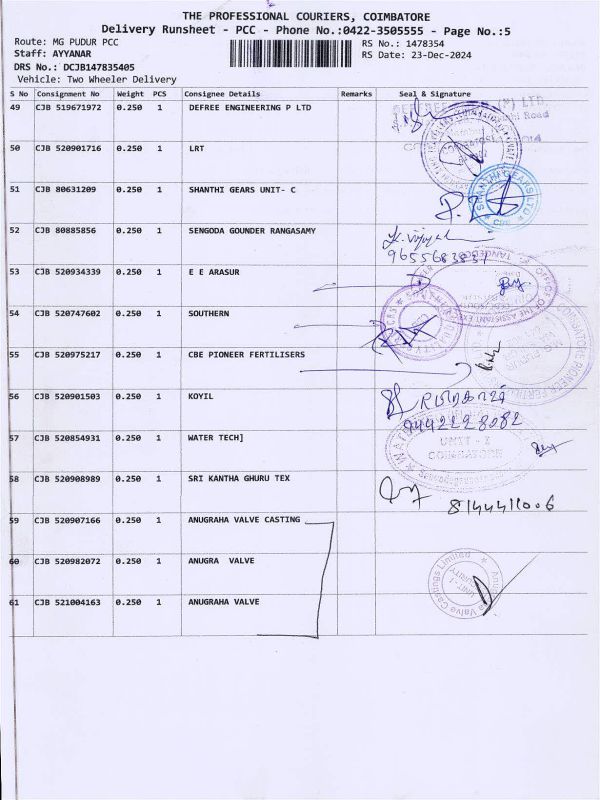 THE PROFESSIONAL COURIERS, COIMBATORE
Delivery Runsheet - PCC - Phone No.:0422-3505555 - Page No.:5
Route: MG PUDUR PCC
RS No.: 1478354
Staff: AYYANAR
RS Date: 23-Dec-2024
DRS No.: DCJB147835405
Vehicle: Two Wheeler Delivery
S No Consignment No Weight PCS Consignee Details Remarks Seal & Signature
49 CJB 519671972 0.250 1 DEFREE ENGINEERING P LTD
50 CJB 520901716 0.250 1 LRT
51 CJB 80631209 0.250 1 SHANTHI GEARS UNIT- C
SHANTHI GEARS LTD
52 CJB 80885856 0.250 1 SENGODA GOUNDER RANGASAMY
53 CJB 520934339 0.250 1 E E ARASUR
OFFICE OF THE ASSISTANT
54 CJB 520747602 0.250 1 SOUTHERN
55 CJB 520975217 0.250 1 CBE PIONEER FERTILISERS
COIMBATORE PIONEER
56 CJB 520901503 0.250 1 KOYIL
9442228082
57 CJB 520854931 0.250 1 WATER TECH]
UNIT - I
COIMBATORE
58 CJB 520908989 0.250 1 SRI KANTHA GHURU TEX
8144411006
59 CJB 520907166 0.250 1 ANUGRAHA VALVE CASTING
60 CJB 520982072 0.250 1 ANUGRA VALVE
61 CJB 521004163 0.250 1 ANUGRAHA VALVE
Valve Castings Limited